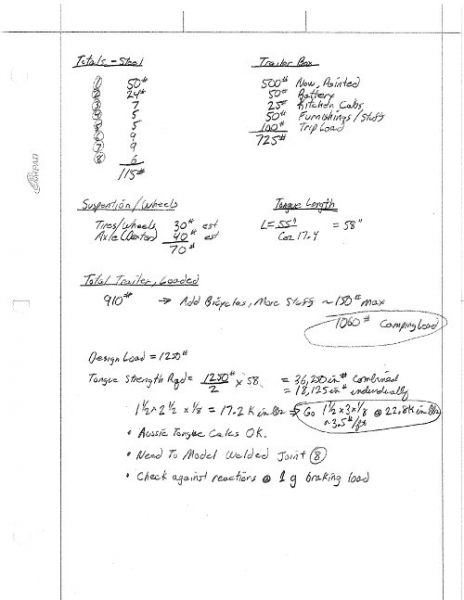 Totals - Steel
① 50#
② 24#
③ 7
④ 5
⑤ 5
⑥ 9
⑦ 9
⑧ 6
115#
Trailer Box
500# Now, Painted
50# Battery
25# Kitchen Cabs,
50# Furnishings/Stuff
100# Trip Load
725#
Suspention/Wheels
Tires/Wheels 30# est
Axle (Dexter) 40# est
70#
Tongue Length
L = 55" = 58"
Cos 17.4
Total Trailer, Loaded
910# → Add Bicycles, More Stuff ~ 150# max
1060# Camping Load
Design Load = 1250#
Tongue Strength Rqd = 1250# x 58 = 36,250 in# combined
2 = 18,125 in# individually
1 1/2 x 2 1/2 x 1/8 = 17.2 K in lbs ⇒ Go 1 1/2 x 3 x 1/8 @ 22.8K in lbs
~ 3.5#/ft
• Aussie Tongue Calcs OK.
• Need To Model Welded Joint ⑧
• Check against reactions @ 1 g braking load